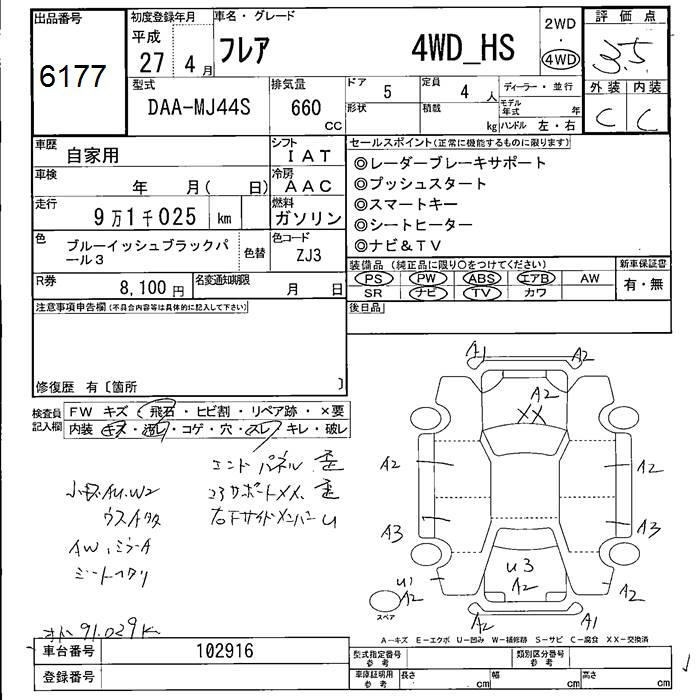 出品番号 初度登録年月 車名・グレード 2WD 評価点
平成 フレア 4WD_HS ・ 3.5
6177 27 4月 4WD
型式 排気量 ドア 5 定員 4 人 ディーラー・並行 外装 内装
DAA-MJ44S 660 cc 形状 積載 kg モデル年式 年 C C
ハンドル 左・右
車歴 自家用 シフト IAT セールスポイント(正常に機能するものに限ります)
車検 年 月( 日) 冷房 AAC ◎レーダーブレーキサポート
走行 9万1千025 km 燃料 ガソリン ◎プッシュスタート
◎スマートキー
色 ブルーイッシュブラックパール3 色替 色コード ZJ3 ◎シートヒーター
◎ナビ&TV
R券 8,100円 名変通知期限 月 日 装備品(純正品に限り○をつけてください) 新車保証書
PS PW ABS エアB AW 有・無
SR ナビ TV カワ
注意事項申告欄(不具合内容等は具体的に記入して下さい) 後日品
修復歴 有〔箇所 〕
検査員記入欄 FW キズ・飛石・ヒビ割・リペア跡・×要
内装 キズ・汚レ・コゲ・穴・スレ・キレ・破レ
エンドパネル 歪
コアサポートメイ 歪
右下サイドメンバーU
小キズAU.W2
ウスイタタ
AW、ミラーA
シートヘタリ
オド 91.029K
A1 A2
A2
XX
A2 A2
A3 A3
U3
A2
U1
A2 A2
スペア
A2 A1
A-キズ E-エクボ U-凹み W-補修跡 S-サビ C-腐食 XX-交換済
車台番号 102916 型式指定番号 参考 類別区分番号 参考
登録番号 車庫証明用 参考 長さ cm 幅 cm 高さ cm